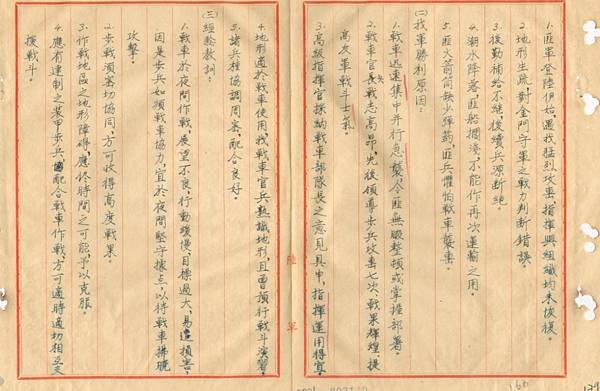 1.匪軍登陸伊始，遇我猛烈攻擊指揮與組織均未恢復。
2.地形生疏對金門守軍之戰力判斷錯誤。
3.後勤補給不繼，後續兵源斷絕。
4.潮水降落，匪船擱淺，不能作再次運輸之用。
5.匪火箭筒缺少彈藥，匪兵懼怕戰車襲擊。
(二)我軍勝利原因：
1.戰車迅速集中并行急襲，令匪無暇整頓或掌握部署。
2.戰車官兵戰志高昂，先後領導步兵攻擊七次戰果輝煌，提
高友軍戰斗士氣。
3.高級指揮官採納戰車部隊長之意見具申，指揮運用得宜。
4.地形適於戰車使用，我戰車官兵熟識地形，且曾預行戰斗演習。
5.諸兵種協調周密，配合良好。
(三)經驗教訓：
1.戰車於夜間作戰，展望不良，行動緩慢，目標過大，易遭損害，
因是步兵如須戰車協力，宜於夜間堅守據点，以待戰車拂曉
攻擊。
2.步戰須密切協同，方可收得高度戰果。
3.作戰地區之地形障碍，應於時間之可能，予以克服。
4.應有建制之裝甲步兵，配合戰車作戰，方可適時適切相互支
援戰斗。
陸軍